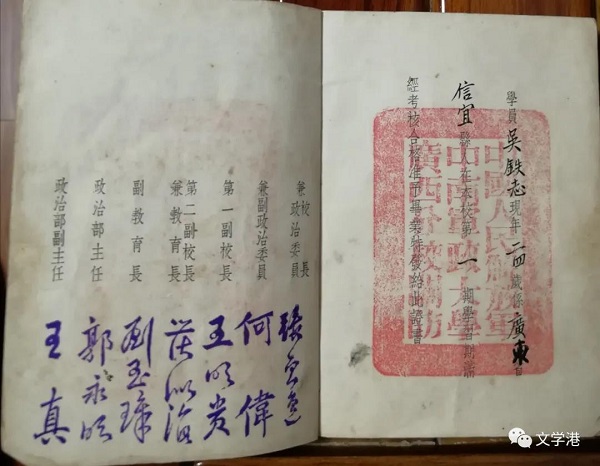 學員吳鉄志現年二四歲係廣東省
信宜縣人在本校第一期學習期滿
經考核合格准予畢業特發給此證書
中國人民解放軍
中南軍政大學
廣西分校關防
校長
兼政治委員 張雲逸
兼副政治委員 何偉
第一副校長 王明贵
第二副校長
兼教育長
副教育長 劉玉璋
政治部主任 郭永
政治部副主任 王真
文学港